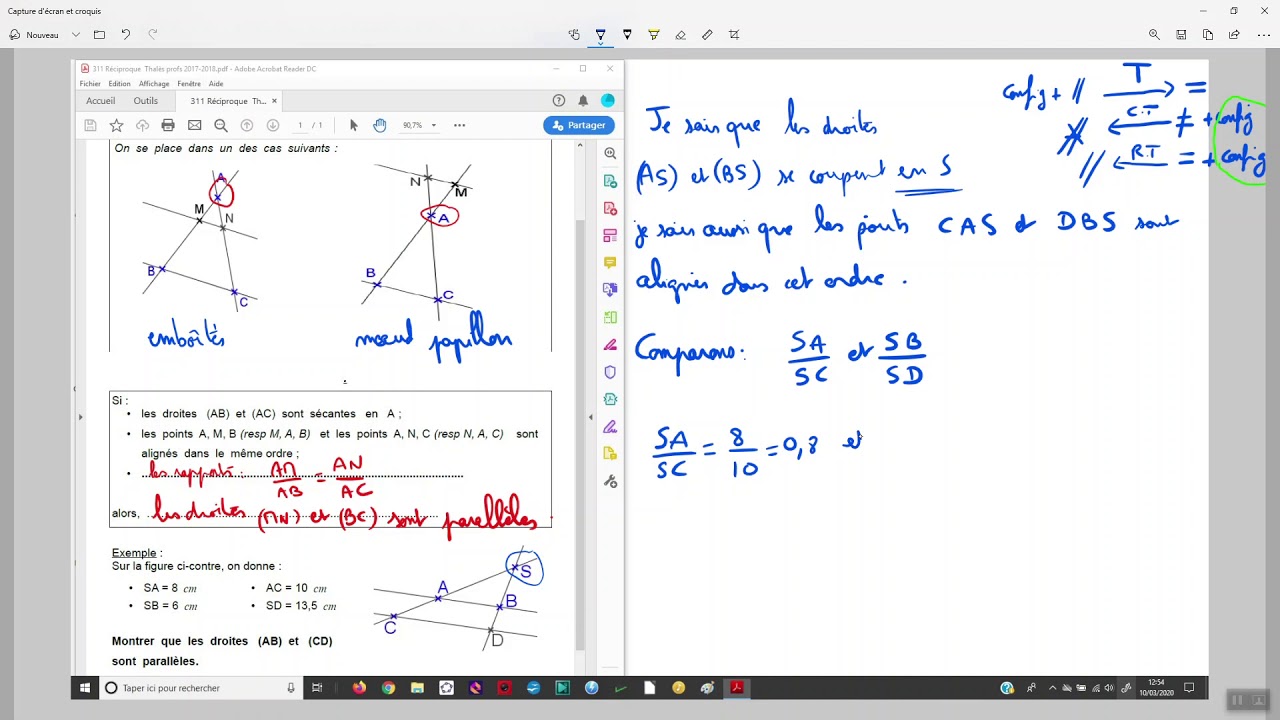 Capture d'écran et croquis
Nouveau
311 Réciproque Thalès profs 2017-2018.pdf - Adobe Acrobat Reader DC
Fichier Edition Affichage Fenêtre Aide
Accueil Outils 311 Réciproque Th... ×
1 / 1 90,7% Partager
On se place dans un des cas suivants :
A
M N
B
C
N M
A
B
C
emboîtés
nœud papillon
Si :
• les droites (AB) et (AC) sont sécantes en A ;
• les points A, M, B (resp M, A, B) et les points A, N, C (resp N, A, C) sont
alignés dans le même ordre ;
• les rapports : AM/AB = AN/AC
alors, les droites (MN) et (BC) sont parallèles.
Exemple :
Sur la figure ci-contre, on donne :
• SA = 8 cm • AC = 10 cm
• SB = 6 cm • SD = 13,5 cm
Montrer que les droites (AB) et (CD)
sont parallèles.
S
A
B
C
D
config + // T =
C.T ≠ + config
// R.T = + config
Je sais que les droites
(AS) et (BS) se coupent en S
je sais aussi que les points CAS et DBS sont
alignés dans cet ordre.
Comparons : SA/SC et SB/SD
SA/SC = 8/10 = 0,8 et
Taper ici pour rechercher
12:54
10/03/2020